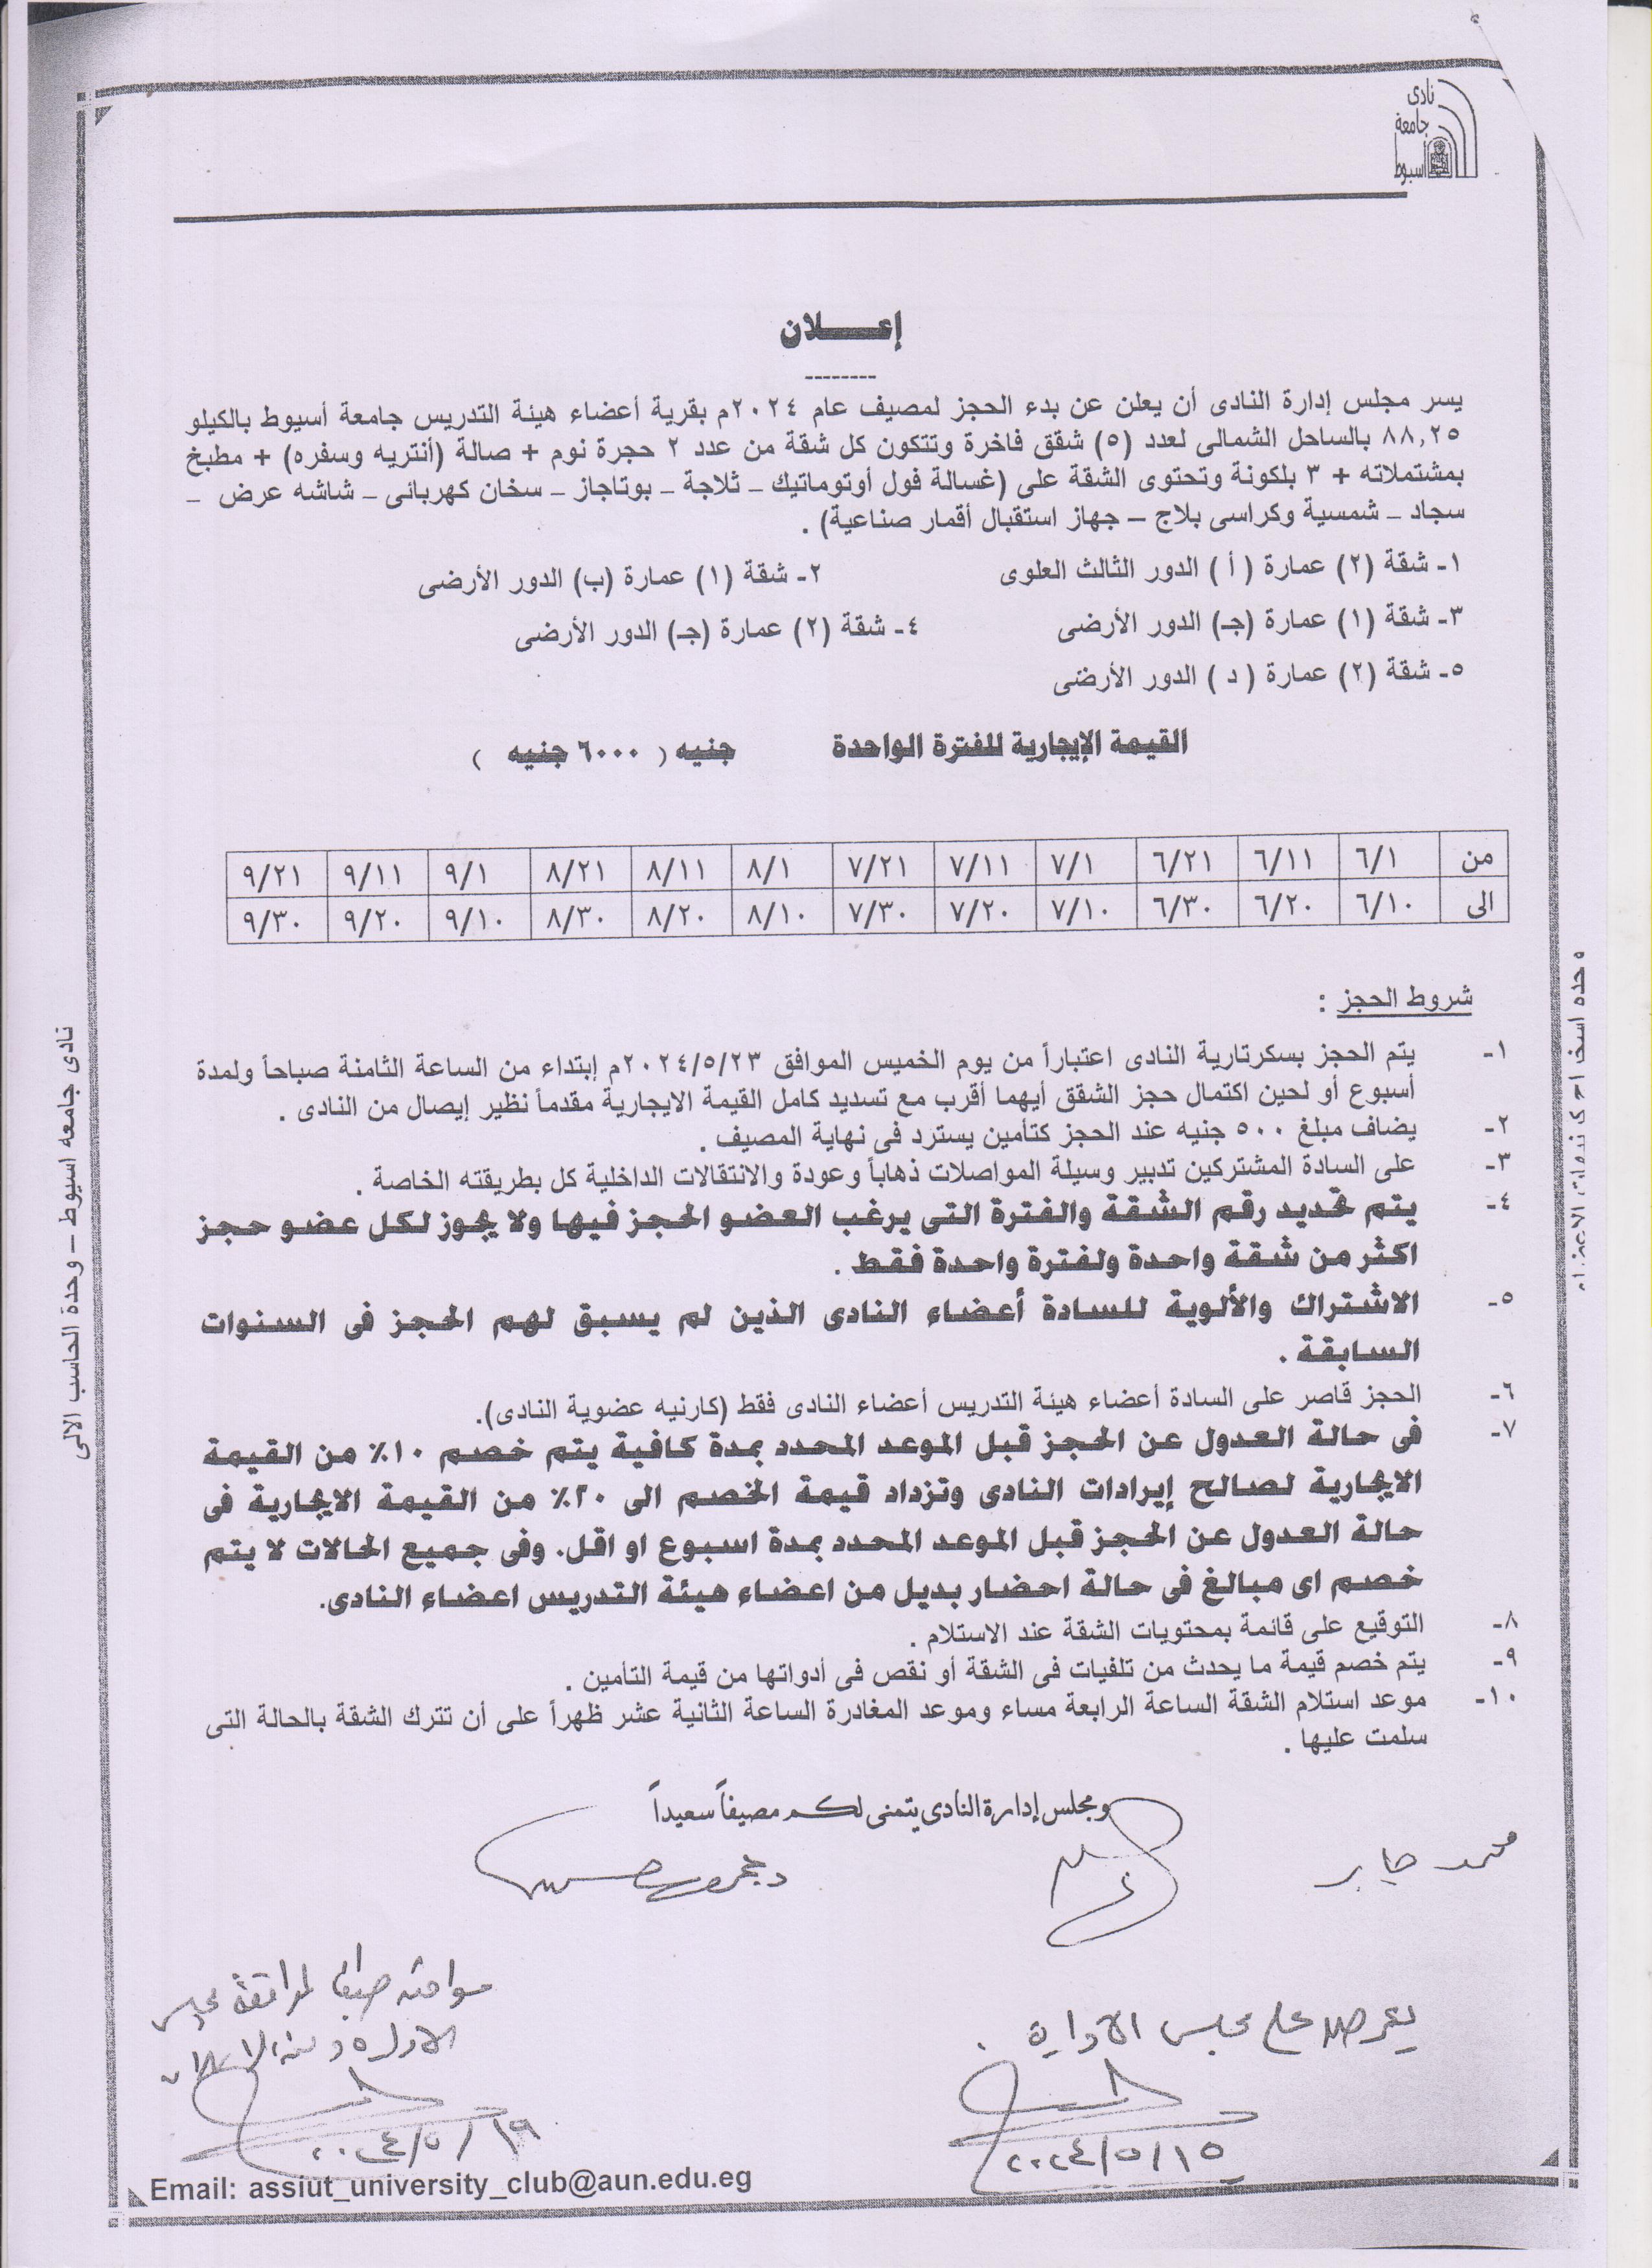 نادى
جامعة
أسيوط
إعـــــلان
--------
يسر مجلس إدارة النادى أن يعلن عن بدء الحجز لمصيف عام ٢٠٢٤م بقرية أعضاء هيئة التدريس جامعة أسيوط بالكيلو
٨٨,٢٥ بالساحل الشمالى لعدد (٥) شقق فاخرة وتتكون كل شقة من عدد ٢ حجرة نوم + صالة (أنتريه وسفره) + مطبخ
بمشتملاته + ٣ بلكونة وتحتوى الشقة على (غسالة فول أوتوماتيك – ثلاجة – بوتاجاز – سخان كهربائى – شاشه عرض –
سجاد – شمسية وكراسى بلاج – جهاز استقبال أقمار صناعية) .
١- شقة (٢) عمارة ( أ ) الدور الثالث العلوى ٢- شقة (١) عمارة (ب) الدور الأرضى
٣- شقة (١) عمارة (جـ) الدور الأرضى ٤- شقة (٢) عمارة (جـ) الدور الأرضى
٥- شقة (٢) عمارة ( د ) الدور الأرضى
القيمة الإيجارية للفترة الواحدة جنيه ( ٦٠٠٠ جنيه )
من ٦/١ ٦/١١ ٦/٢١ ٧/١ ٧/١١ ٧/٢١ ٨/١ ٨/١١ ٨/٢١ ٩/١ ٩/١١ ٩/٢١
الى ٦/١٠ ٦/٢٠ ٦/٣٠ ٧/١٠ ٧/٢٠ ٧/٣٠ ٨/١٠ ٨/٢٠ ٨/٣٠ ٩/١٠ ٩/٢٠ ٩/٣٠
شروط الحجز :
١- يتم الحجز بسكرتارية النادى اعتباراً من يوم الخميس الموافق ٢٠٢٤/٥/٢٣م إبتداء من الساعة الثامنة صباحاً ولمدة
أسبوع أو لحين اكتمال حجز الشقق أيهما أقرب مع تسديد كامل القيمة الايجارية مقدماً نظير إيصال من النادى .
٢- يضاف مبلغ ٥٠٠ جنيه عند الحجز كتأمين يسترد فى نهاية المصيف .
٣- على السادة المشتركين تدبير وسيلة المواصلات ذهاباً وعودة والانتقالات الداخلية كل بطريقته الخاصة .
٤- يتم تحديد رقم الشقة والفترة التى يرغب العضو الحجز فيها ولا يجوز لكل عضو حجز
اكثر من شقة واحدة ولفترة واحدة فقط .
٥- الاشتراك والألوية للسادة أعضاء النادى الذين لم يسبق لهم الحجز فى السنوات
السابقة .
٦- الحجز قاصر على السادة أعضاء هيئة التدريس أعضاء النادى فقط (كارنيه عضوية النادى).
٧- فى حالة العدول عن الحجز قبل الموعد المحدد بمدة كافية يتم خصم ١٠٪ من القيمة
الايجارية لصالح إيرادات النادى وتزداد قيمة الخصم الى ٢٠٪ من القيمة الايجارية فى
حالة العدول عن الحجز قبل الموعد المحدد بمدة اسبوع او اقل. وفى جميع الحالات لا يتم
خصم اى مبالغ فى حالة احضار بديل من اعضاء هيئة التدريس اعضاء النادى.
٨- التوقيع على قائمة بمحتويات الشقة عند الاستلام .
٩- يتم خصم قيمة ما يحدث من تلفيات فى الشقة أو نقص فى أدواتها من قيمة التأمين .
١٠- موعد استلام الشقة الساعة الرابعة مساء وموعد المغادرة الساعة الثانية عشر ظهراً على أن تترك الشقة بالحالة التى
سلمت عليها .
ومجلس إدارة النادى يتمنى لكم مصيفاً سعيداً
محمد جابر
يعرض على مجلس الادارة .
٢٠٢٤/٥/١٥
مجلس
الادارة
Email: assiut_university_club@aun.edu.eg
نادى جامعه اسيوط – وحدة الحاسب الالى